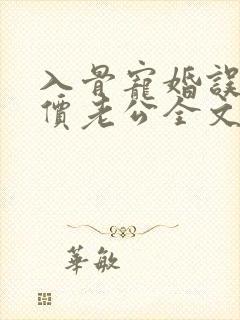 入骨寵婚誤
價老公全文
華敏